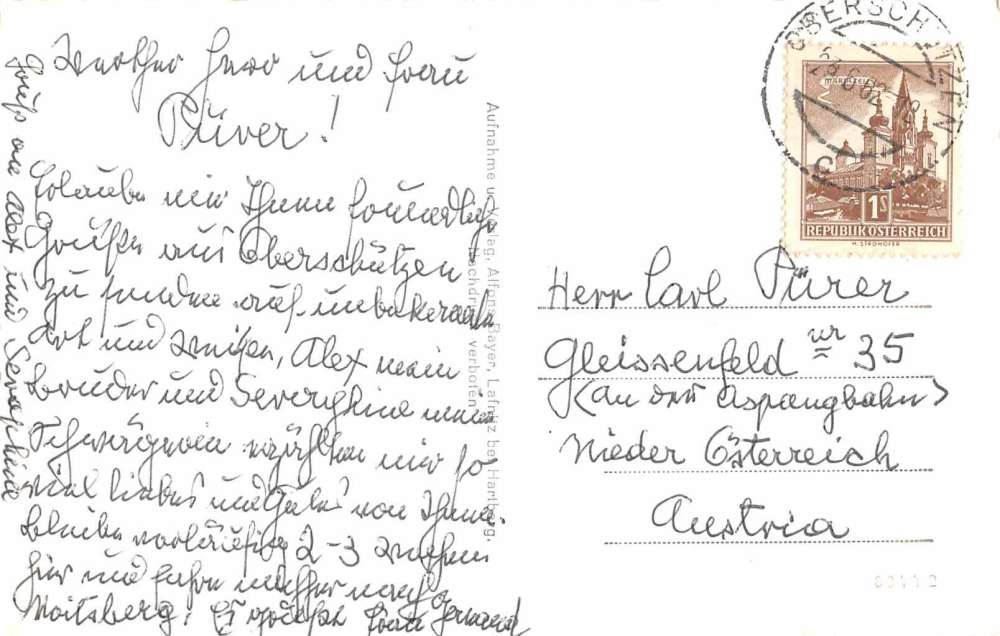 Werther Herr und Frau
Pürer!
Erlaube mir Ihnen freundliche
Grüße aus Oberschützen
zu senden auf unbekannte
Art und Weise, Alex mein
Bruder und Seraphine meine
Schwägerin erzählten mir so
viel liebes und Gutes von Ihnen.
Bleibe vorläufig 2-3 Wochen
hier und fahre nachher nach
Voitsberg. Es grüßt Frau
Gruß an Alex und Seraphine
Aufnahme u. Verlag, Alfons Bayer, Lafnitz bei Hartberg.
Nachdruck verboten
OBERSCHÜTZEN
23.8.62
MARIAZELL
1S
REPUBLIK ÖSTERREICH
H. STROHOFER
Herr Carl Pürer
Gleissenfeld nr 35
(an der Aspangbahn)
Nieder Österreich
Austria